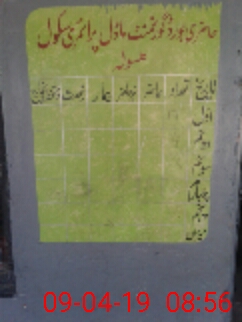 حاضری بورڈ گورنمنٹ ماڈل پرائمری سکول
تاریخ تعداد حاضر غیرحاضر بیمار رخصت
اول
دوئم
سوئم
چہارم
پنجم
09-04-19 08:56